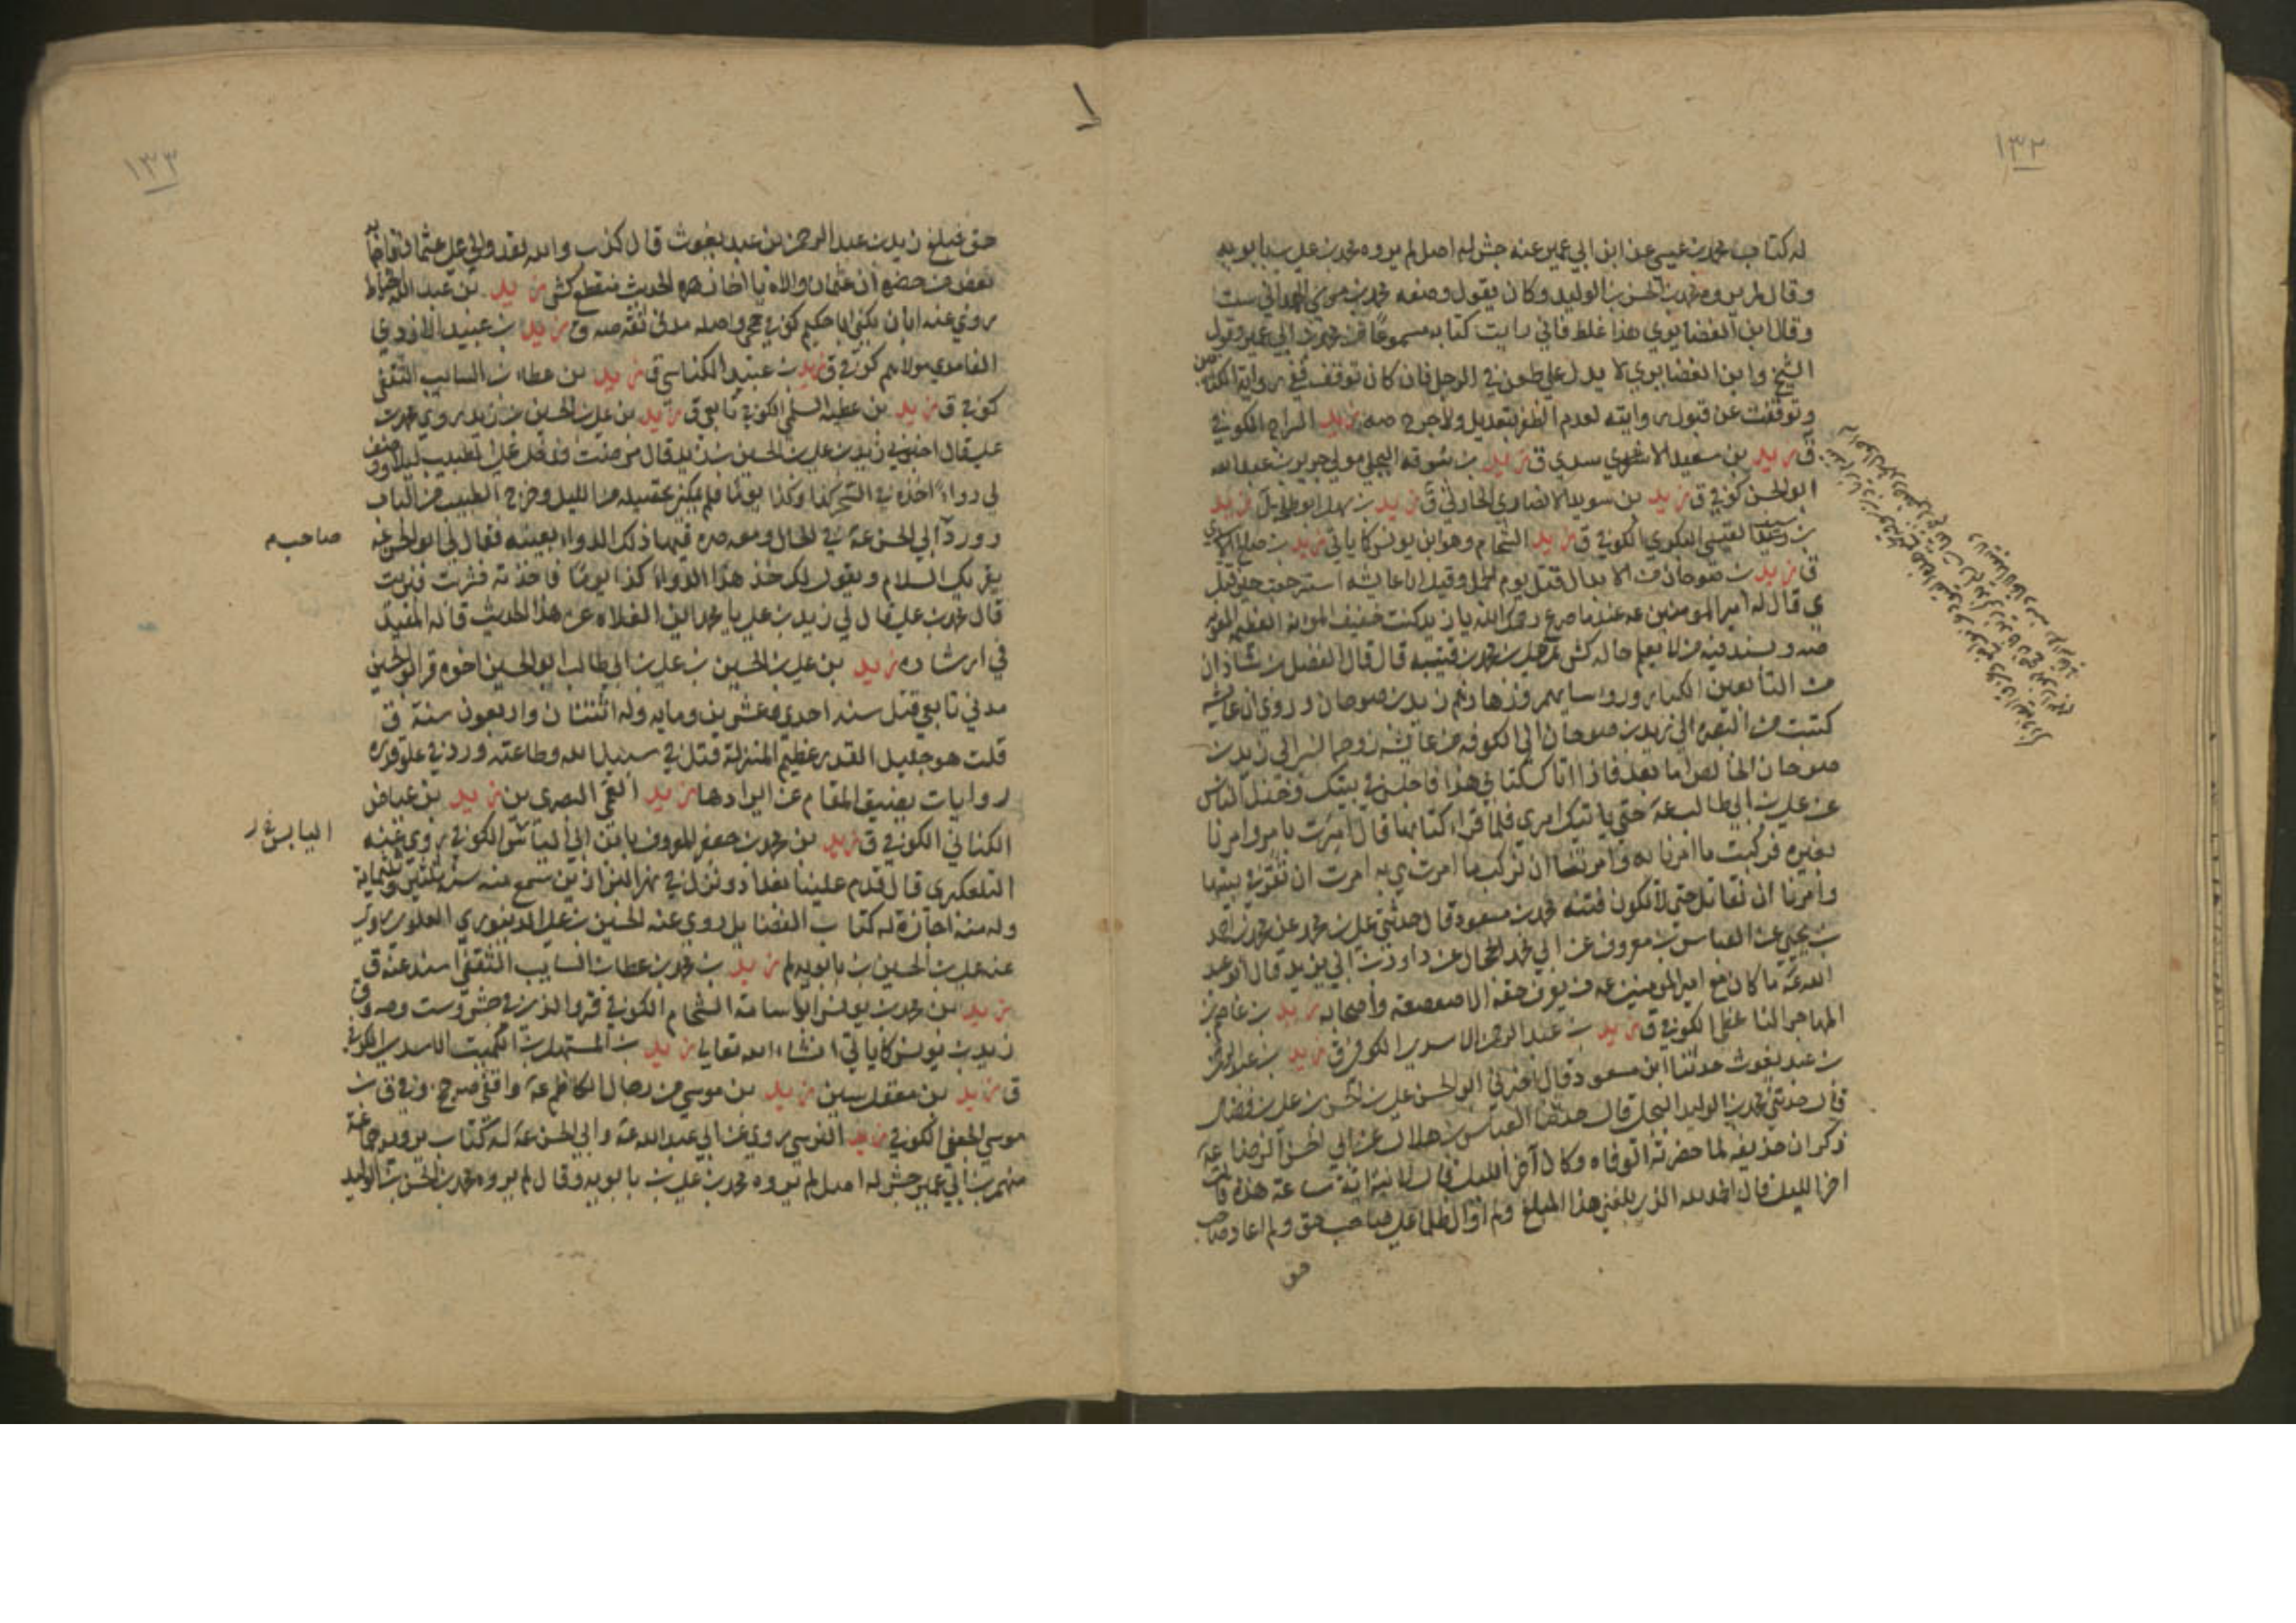 ١٣٢
له كتاب محمد بن عيسى عن ابن ابي عمير عنه جش له اصل لم يروه محمد بن علي بن بابويه
وقال لم يروه محمد بن الحسن بن الوليد وكان يقول وضعه محمد بن موسى الهمداني ست
وقال ابن الغضايري هذا غلط فاني رايت كتابه مسموعا من محمد بن ابي عمير وقول
الشيخ وابن الغضايري لا يدل على طعن في الرجل فان كان توقف ففي رواية الكتابين
وتوقفت عن قبول روايته لعدم الظفر بتعديل ولا جرح صه زيد السراج الكوفي
ق زيد بن سعيد الاشعري سدي ق زيد بن سوقه البجلي مولى جرير بن عبد الله
ابو الحسن كوفي ق زيد بن سويد الانصاري الحارثي ق زيد بن سهل ابو طلحة ل زيد
بن سيف القيسي البكري الكوفي ق زيد الشحام وهو ابن يونس كما ياتي زيد بن صالح الاسدي
ق زيد بن صوحان من الابدال قتل يوم الجمل وقيل ان عايشه استرجعت حين قتل
ي قال له امير المؤمنين عه عند ما صرع رحمك الله يا زيد كنت خفيف المؤنة العظيم المعونة
صه وبسند فيه من لا يعلم حاله كش علي بن محمد بن قتيبه قال قال الفضل بن شاذان
من التابعين الكبار وروسايهم وزهادهم زيد بن صوحان وروي ان عايشه
كتبت من البصرة الى زيد بن صوحان الى الكوفه من عايشه زوجه النبي الى زيد بن
صوحان الخالص اما بعد فاذا اتاك كتابي هذا فاجلس في بيتك وخذل الناس
عن علي بن ابي طالب عه حتى ياتيك امري فلما قراء كتابها قال امرت بامر وامرنا
بغيره فركبت ما امرنا به وامرتنا ان نركب ما امرت هي به امرت ان تقر في بيتها
وامرنا ان نقاتل حتى لا تكون فتنه محمد بن مسعود قال حدثني علي بن محمد عن محمد بن احمد
بن يحيى عن العباس بن معروف عن ابي محمد الحجال عن داود بن ابي يزيد قال ابو عبد
الله عه ما كان مع امير المومنين عه من يعرف حقه الا صعصعة واصحابه زيد بن عاصم بن
المهاجر الناعطي الكوفي ق زيد بن عبد الرحمن الاسدي الكوفي ق زيد بن عبد الرحمن
بن عبد يغوث حدثنا ابن مسعود قال اخبرني ابو الحسن علي بن الحسن بن علي بن فضال
قال حدثني محمد بن الوليد البجلي قال حدثنا العباس بن هلال عن ابي الحسن الرضا عه
ذكر ان حذيفه لما حضرته الوفاه وكان آخر الليل قال لابنته اية ساعة هذه قالت
اخر الليل قال الحمد لله الذي بلغني هذا المبلغ ولم اوال ظالما على صاحب حق ولم اعاد صاحب
حق
١٣٣
حق فبلغ زيد بن عبد الرحمن بن عبد يغوث قال كذب والله لقد والى على عثمان فاجابه
بعض من حضره ان عثمان والاه يا اخا زهره الحديث منقطع كش زيد بن عبد الله الحناط
روى عنه ابان يكنى ابا حكيم كوفي جمحي واصله مدني ثقة صه ق زيد بن عبيد الازدي
الغامدي مولاهم كوفي ق زيد بن عبيد الكناسي ق زيد بن عطاء بن السايب الثقفي
كوفي ق زيد بن عطيه السلمي الكوفي تابعي ق زيد بن علي بن الحسين بن زيد روى محمد بن
علي قال اخبرني زيد بن علي بن الحسين بن زيد قال مرضت فدخل علي الطبيب ليلا ووصف
لي دواء اخذه في السحر كذا وكذا يوما فلم يمكني تحصيله من الليل وخرج الطبيب من الباب
وورد ابي الحسن عه في الحال ومعه صره فيها ذلك الدواء بعينه فقال لي ابو الحسن عه
صاحب م
يقريك السلام ويقول لك خذ هذا الدواء كذا يوما فاخذته فشربت فبرئت
قال محمد بن علي قال لي زيد بن علي يا محمد اين الغلاة عن هذا الحديث قاله المفيد
في ارشاده زيد بن علي بن الحسين بن علي بن ابي طالب ابو الحسين اخوه قر ابو الحسين
مدني تابعي قتل سنه احدى وعشرين ومايه وله اثنتان واربعون سنة ق
قلت هو جليل القدر عظيم المنزلة قتل في سبيل الله وطاعته وورد في علو قدره
روايات يضيق المقام عن ايرادها زيد العمي البصري بن زيد بن عياض
الكناني الكوفي ق زيد بن محمد بن جعفر المعروف بابن ابي الياس الكوفي روى عنه
اليابس خ ر
التلعكبري قال قدم علينا بغداد ونزل في نهر البزازين سمع منه سنة ثلثين وثلثماية
وله منه اجازة له كتاب الفضايل روى عنه الحسين بن علي الدينوري العلوي روى
عنه علي بن الحسين بن بابويه لم زيد بن محمد بن عطا بن السايب الثقفي اسند عنه ق
زيد بن محمد بن يونس ابو اسامة الشحام الكوفي قر والذي في جش وست وصه وق
زيد بن يونس كما ياتي انشاء الله تعالى زيد بن المستهل بن الكميت الاسدي الكوفي
ق زيد بن معقل سين زيد بن موسى من رجال الكاظم عه واقفي صه ج وفي ق بن
موسى الجعفي الكوفي زيد النرسي روى عن ابي عبد الله عه وابي الحسن عه له كتاب يرويه جماعة
منهم بن ابي عمير جش له اصل لم يروه محمد بن علي بن بابويه وقال لم يروه محمد بن الحسن بن الوليد